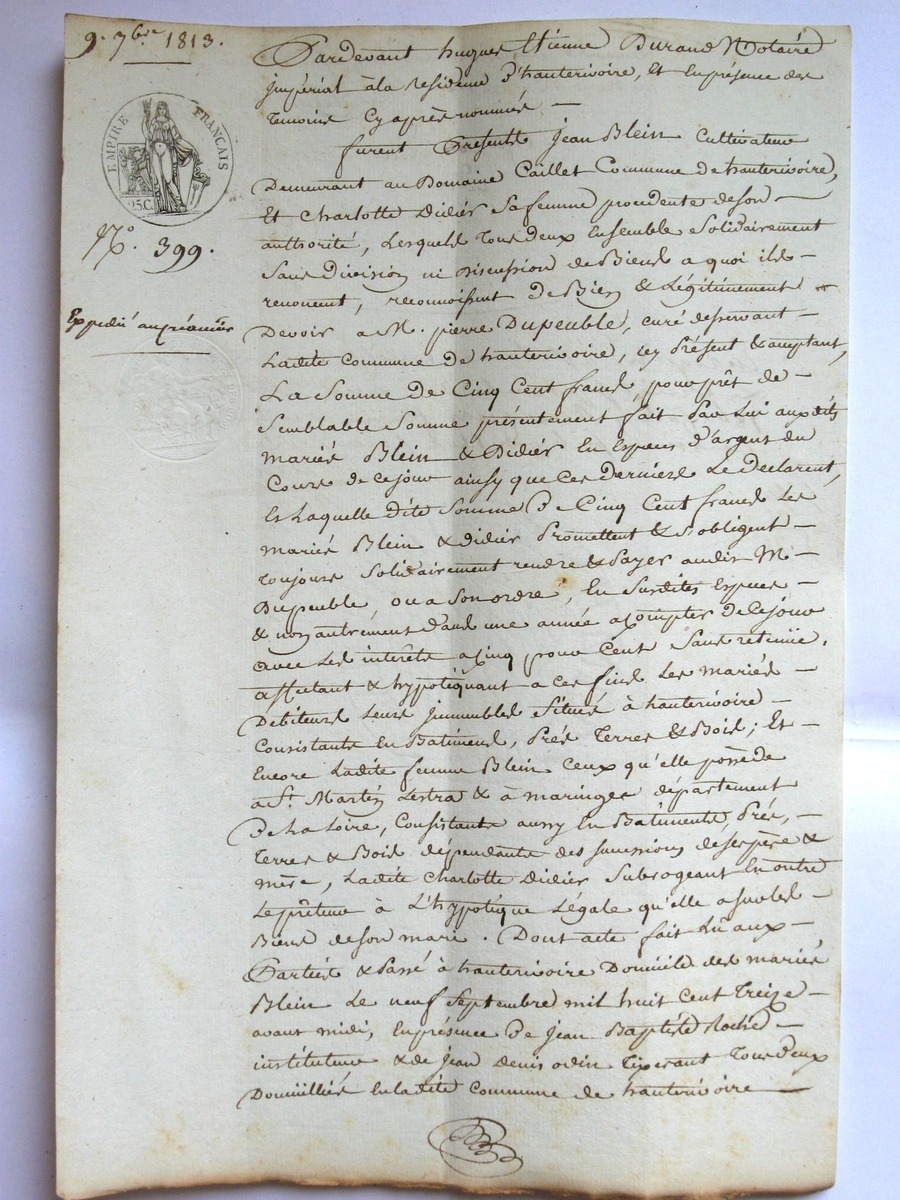 9. 7bre 1813.
EMPIRE FRANÇAIS
25.C.
No. 399.
Expedié au créancier
Pardevant hugues Etienne Durand Notaire
jmpérial àla residence d'hauterivoire, Et En présence des
temoins Cy après nommés —
furent Présents jean Blein Cultivateur
Demeurant au Domaine Caillet Commune de hauterivoire,
Et Charlotte Didier Sa femme procedente deson —
authorité, Lesquels tous deux Ensemble Solidairement
Sans Division ni Discussion de Biens a quoi ils —
renoncent, reconnoissent de Bien & Légitimement
Devoir a M. pierre Dupeuble, curé desservant —
Ladite Commune de hauterivoire, icy Présent & acceptant,
La Somme De Cinq Cent francs, pour prêt de —
Semblable Somme présentement fait Par Lui aux dits
mariés Blein & Didier En Especes d'argent du
Cours de cejour ainsy que Ces Derniers Le Declarent,
Et Laquelle dite Somme De Cinq Cent francs Les
mariés Blein & didier Promettent & S'obligent —
toujours Solidairement rendre & Payer audit M —
Dupeuble, ou a Son ordre, En Susdites Especes —
& non autrément dans une année a Compter de Cejour
avec Les interêts a Cinq pour Cent Sans retenüe,
affectant & hypotéquant a Ces fins Les mariés —
Debiteurs Leurs jmmeubles Situés à hauterivoire —
Consistants En Batiments, Prés Terres & Bois; Et —
Encore Ladite femme Blein Ceux qu'elle possède
a St. Martin Lestra & à maringes département
De La Loire, Consistants aussy En Batiments, Prés, —
Terres & Bois dépendants des Successions de Ses père &
mère, Ladite Charlotte Didier Subrogeant En outre
Le prêteur à L'hypotéque Légale qu'elle a Sur les
Biens de Son mari. Dont acte fait Lû aux —
Parties & Passé à hauterivoire Domicile des mariés
Blein Le neuf Septembre mil huit Cent Treize —
avant midi, En présence De Jean Baptiste Roche —
instituteur & de jean denis odin Tixerant Tous deux
Domicilliés En Ladite Commune de hauterivoire —